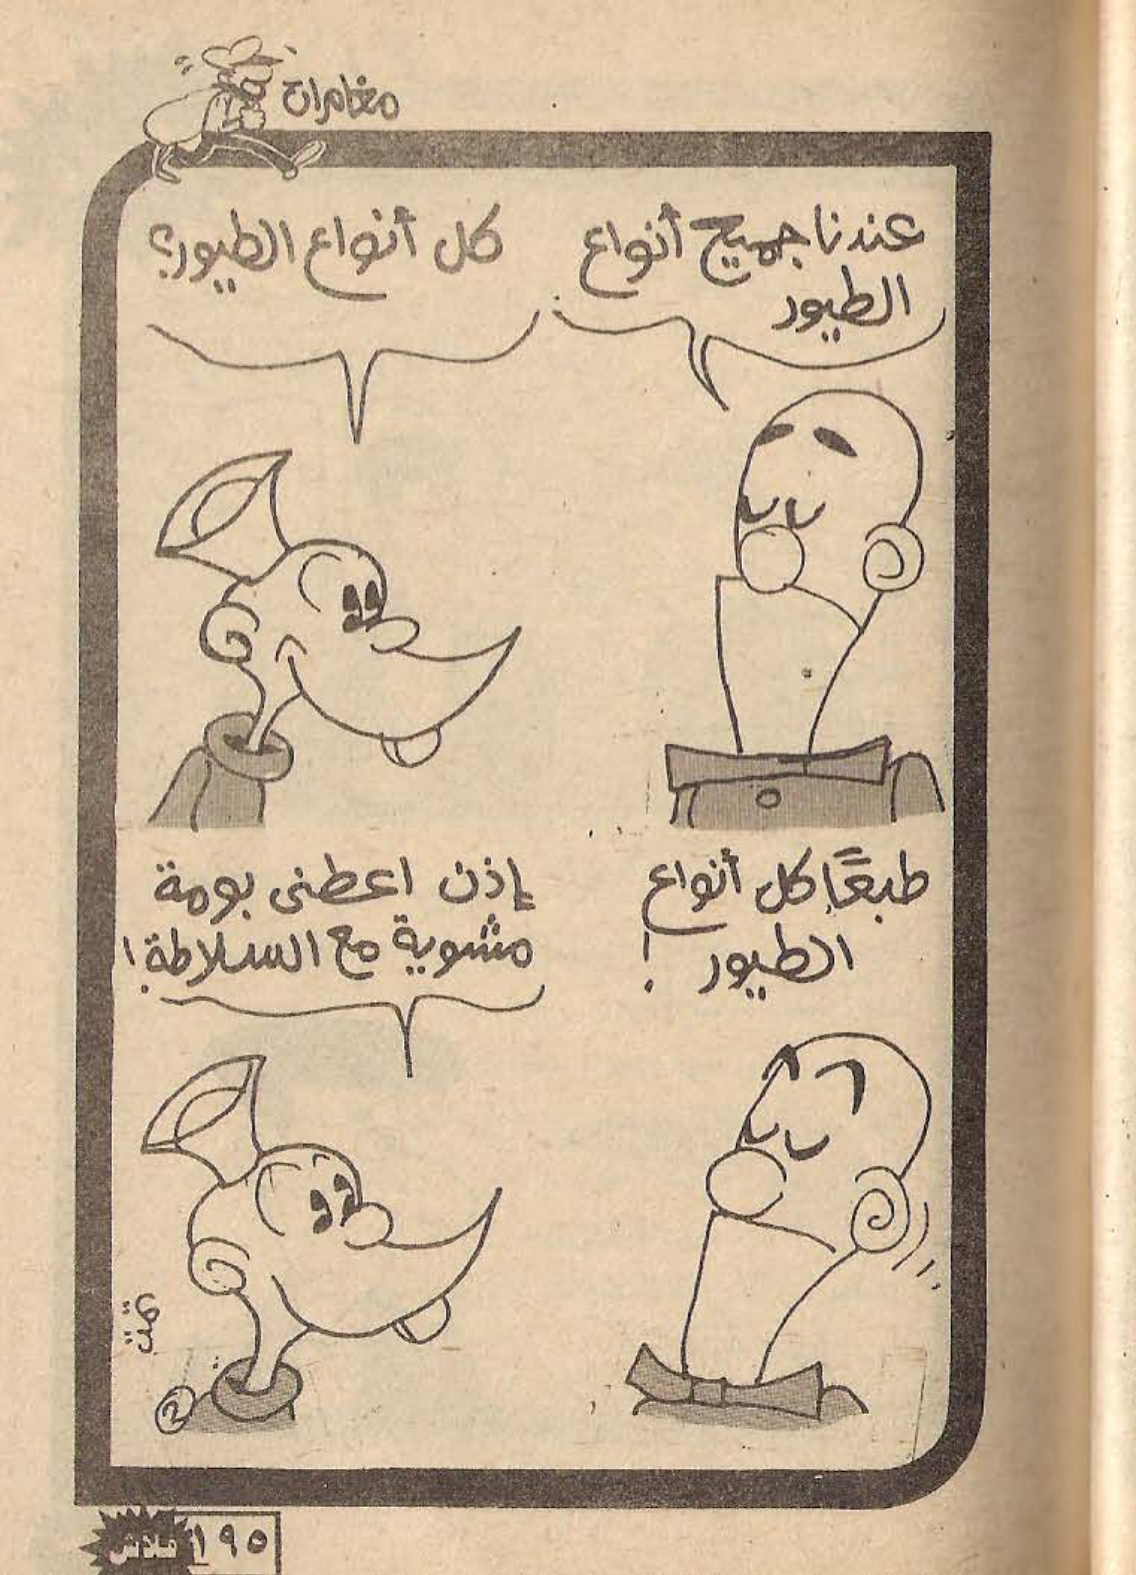 مغامرات
عندنا جميع أنواع
الطيور
كل أنواع الطيور؟
طبعًا كل أنواع
الطيور !
إذن اعطنى بومة
مشوية مع السلاطة!
تمت
١٩٥ فلاش